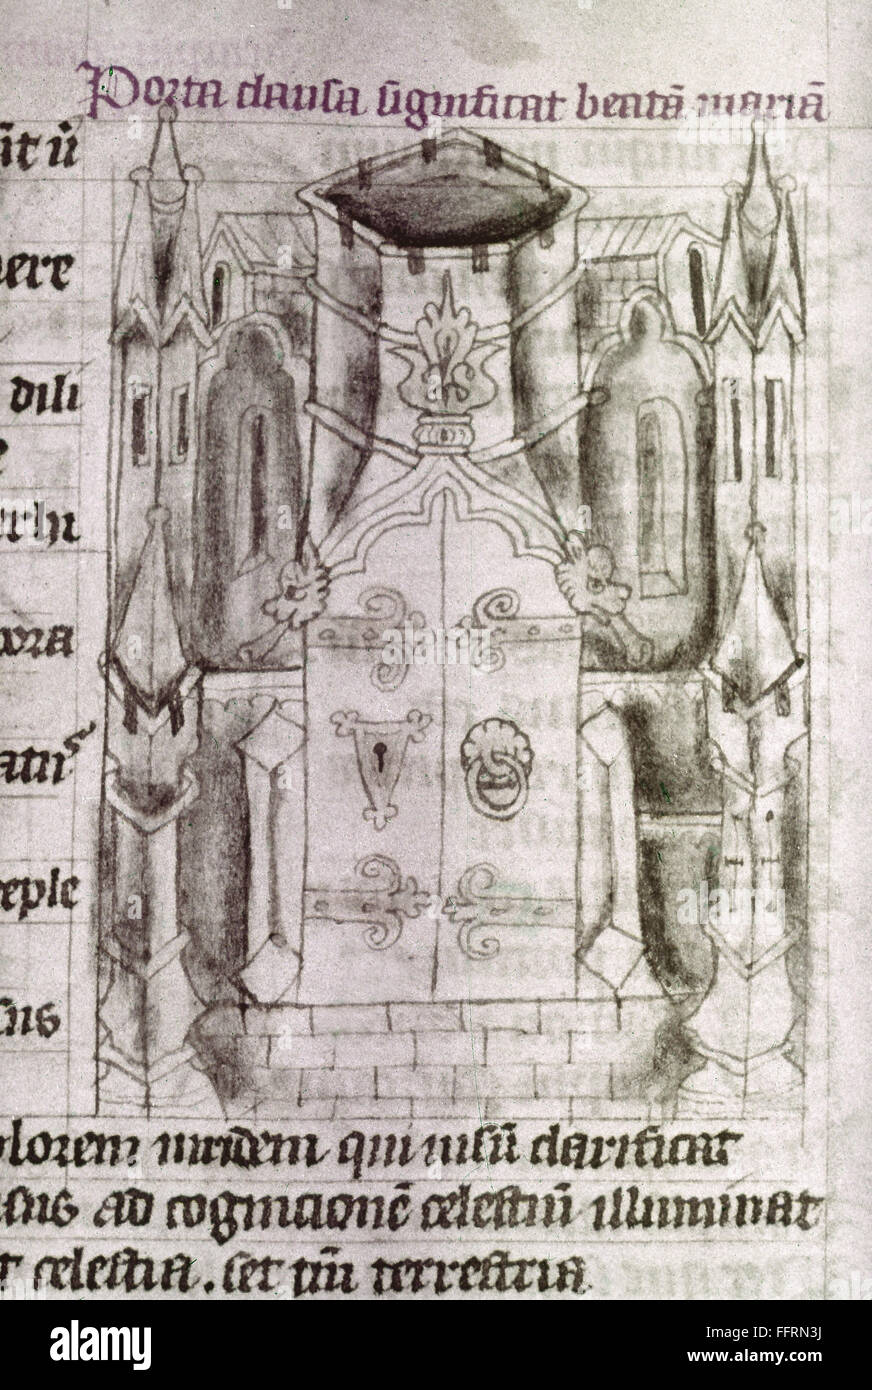 Porta clausa significat beatā mariā
ūt ū
ere
dili
e
ora
eple
sus
olorem uiridem qui uisū clarificat
sus ad cognicionē celestiū illuminat
t celestia . set tm̄ terrestria
a alamy stock photo
alamy
Image ID: FFRN3J
www.alamy.com